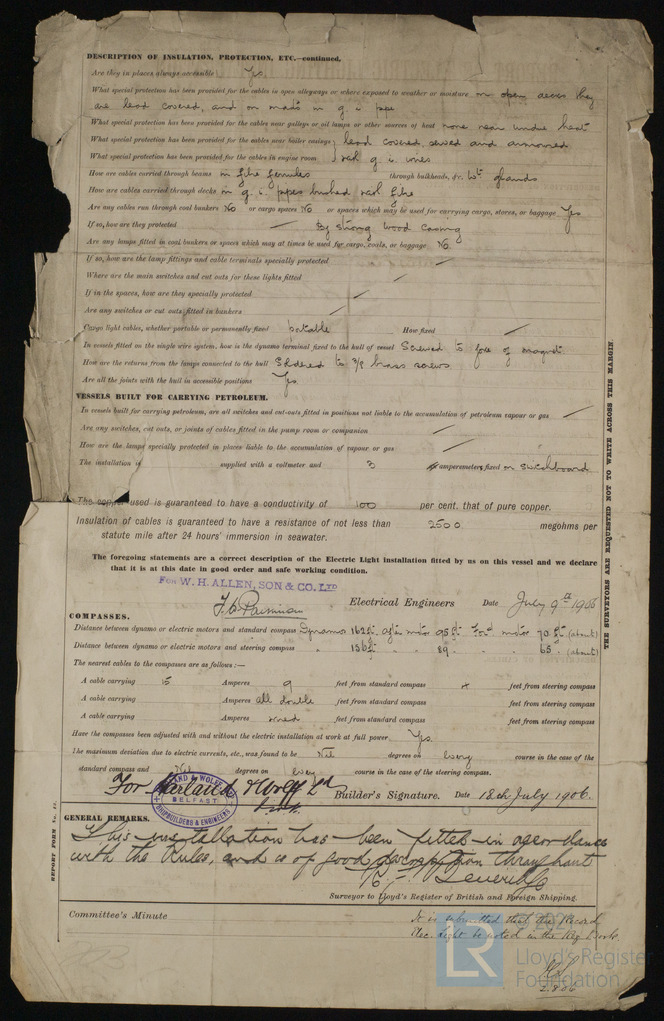 DESCRIPTION OF INSULATION, PROTECTION, ETC.—continued.
Are they in places always accessible Yes
What special protection has been provided for the cables in open alleyways or where exposed to weather or moisture on open decks they
are lead covered, and on masts in g. i. pipe
What special protection has been provided for the cables near galleys or oil lamps or other sources of heat none near undue heat
What special protection has been provided for the cables near boiler casings } lead covered, served and armoured
What special protection has been provided for the cables in engine room } with g. i. wires
How are cables carried through beams in fibre ferrules through bulkheads, &c. W.t. glands
How are cables carried through decks in g. i. pipes bushed with fibre
Are any cables run through coal bunkers No or cargo spaces No or spaces which may be used for carrying cargo, stores, or baggage Yes
If so, how are they protected By strong wood casing
Are any lamps fitted in coal bunkers or spaces which may at times be used for cargo, coals, or baggage No
If so, how are the lamp fittings and cable terminals specially protected
Where are the main switches and cut outs for these lights fitted
If in the spaces, how are they specially protected
Are any switches or cut outs fitted in bunkers
Cargo light cables, whether portable or permanently fixed portable How fixed
In vessels fitted on the single wire system, how is the dynamo terminal fixed to the hull of vessel Screwed to yoke of magnet
How are the returns from the lamps connected to the hull Soldered to 3/8 brass screws
Are all the joints with the hull in accessible positions Yes
VESSELS BUILT FOR CARRYING PETROLEUM.
In vessels built for carrying petroleum, are all switches and cut-outs fitted in positions not liable to the accumulation of petroleum vapour or gas
Are any switches, cut outs, or joints of cables fitted in the pump room or companion
How are the lamps specially protected in places liable to the accumulation of vapour or gas
The installation is supplied with a voltmeter and 3 amperemeters fixed on switchboard
The copper used is guaranteed to have a conductivity of 100 per cent. that of pure copper.
Insulation of cables is guaranteed to have a resistance of not less than 2500 megohms per
statute mile after 24 hours' immersion in seawater.
The foregoing statements are a correct description of the Electric Light installation fitted by us on this vessel and we declare
that it is at this date in good order and safe working condition.
FOR W. H. ALLEN, SON & CO. LTD
Electrical Engineers Date July 9th 1906
COMPASSES.
Distance between dynamo or electric motors and standard compass Dynamo 162 ft. after motor 95 ft. Ford motor 70 ft. (about)
Distance between dynamo or electric motors and steering compass " 156 ft " 89 " " 65 " (about)
The nearest cables to the compasses are as follows:—
A cable carrying 15 Amperes 9 feet from standard compass x feet from steering compass
A cable carrying Amperes all double feet from standard compass feet from steering compass
A cable carrying Amperes wired feet from standard compass feet from steering compass
Have the compasses been adjusted with and without the electric installation at work at full power Yes.
The maximum deviation due to electric currents, etc., was found to be Nil degrees on Every course in the case of the
standard compass and Nil degrees on Every course in the case of the steering compass.
For Harland & Wolff Ld Builder's Signature. Date 18th July 1906.
HARLAND & WOLFF LTD
BELFAST
SHIPBUILDERS & ENGINEERS
GENERAL REMARKS.
This installation has been fitted in accordance
with the Rules, and is of good description throughout
Surveyor to Lloyd's Register of British and Foreign Shipping.
Committee's Minute
It is submitted that the Record
Elec. light be noted in the Reg. Book
2.8.06
REPORT FORM No. 11.
THE SURVEYORS ARE REQUESTED NOT TO WRITE ACROSS THIS MARGIN.
LR
Lloyd's Register
Foundation